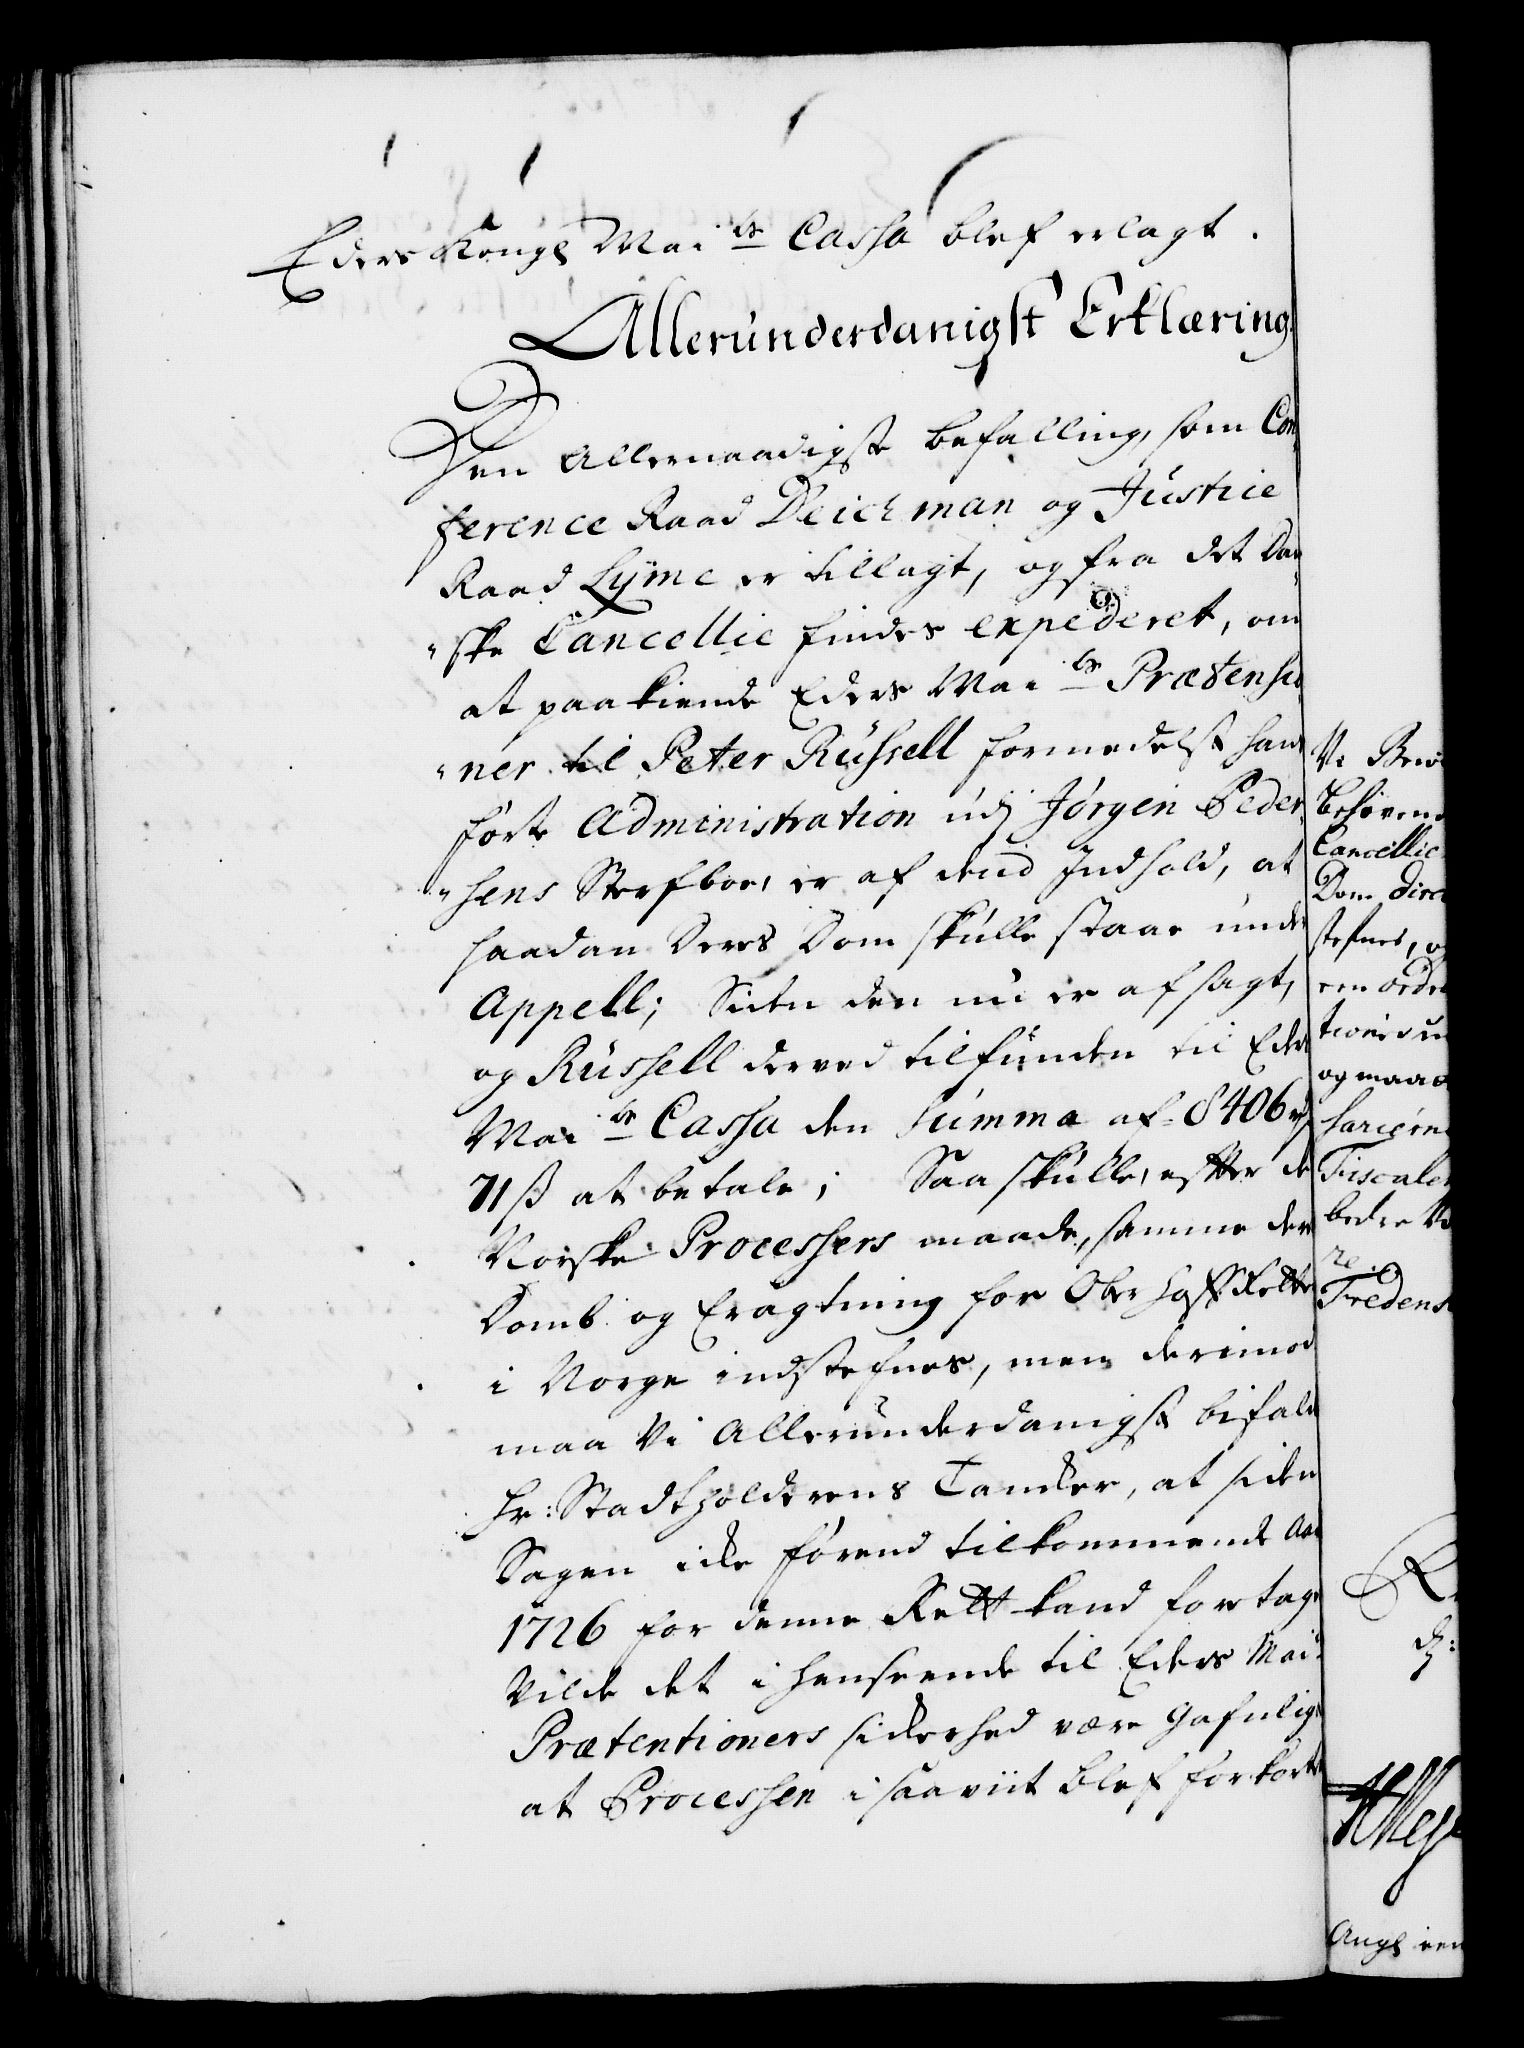 Eders Kongl Mai ts Cassa blef erlagt.
Allerunderdanigst Erklæring.
Den Allernaadigste befalling, som Con
ference Raad Deichman og Justice
Raad Lÿme er tillagt, og fra det Dan
"ske Cancellie findes expederet, om
at paakiende Eders Mai ts Prætensio
"ner til Peter Russell formedelst hans
førte Administration udj Jørgen Peder
"sens Sterfboe, er af deñd Indhold, at
saadan Deres Dom skulle staae under
Appell; Siden den nu er afsagt,
og Russell derved tilfunden til Eders
Mai ts Cassa den Summa af 8406 rd
71 ß at betale; Saa skulle, efter de
Norske Processers maade, samme deres
Domb og Eragtning for Ober Hoff Retten
i Norge indstefnes, men derimod
maa Vi Allerunderdanigst bifalde
Hr: Stadtholderens Tancker, at siden
Sagen icke førend tilkommende Aar
1726 for denne Rett kand foretages
Vilde det i henseende til Eders Mai ts
Prætentioners sickerhed være gafnligt
at Processen i saaviit blef forkortet
Vi
behøven
Cancellie
Dom direc
stefnes, o
een ordre
og maa
Fiscalen
bedre
Fredens